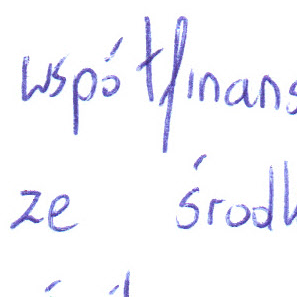 współfinans
ze środk